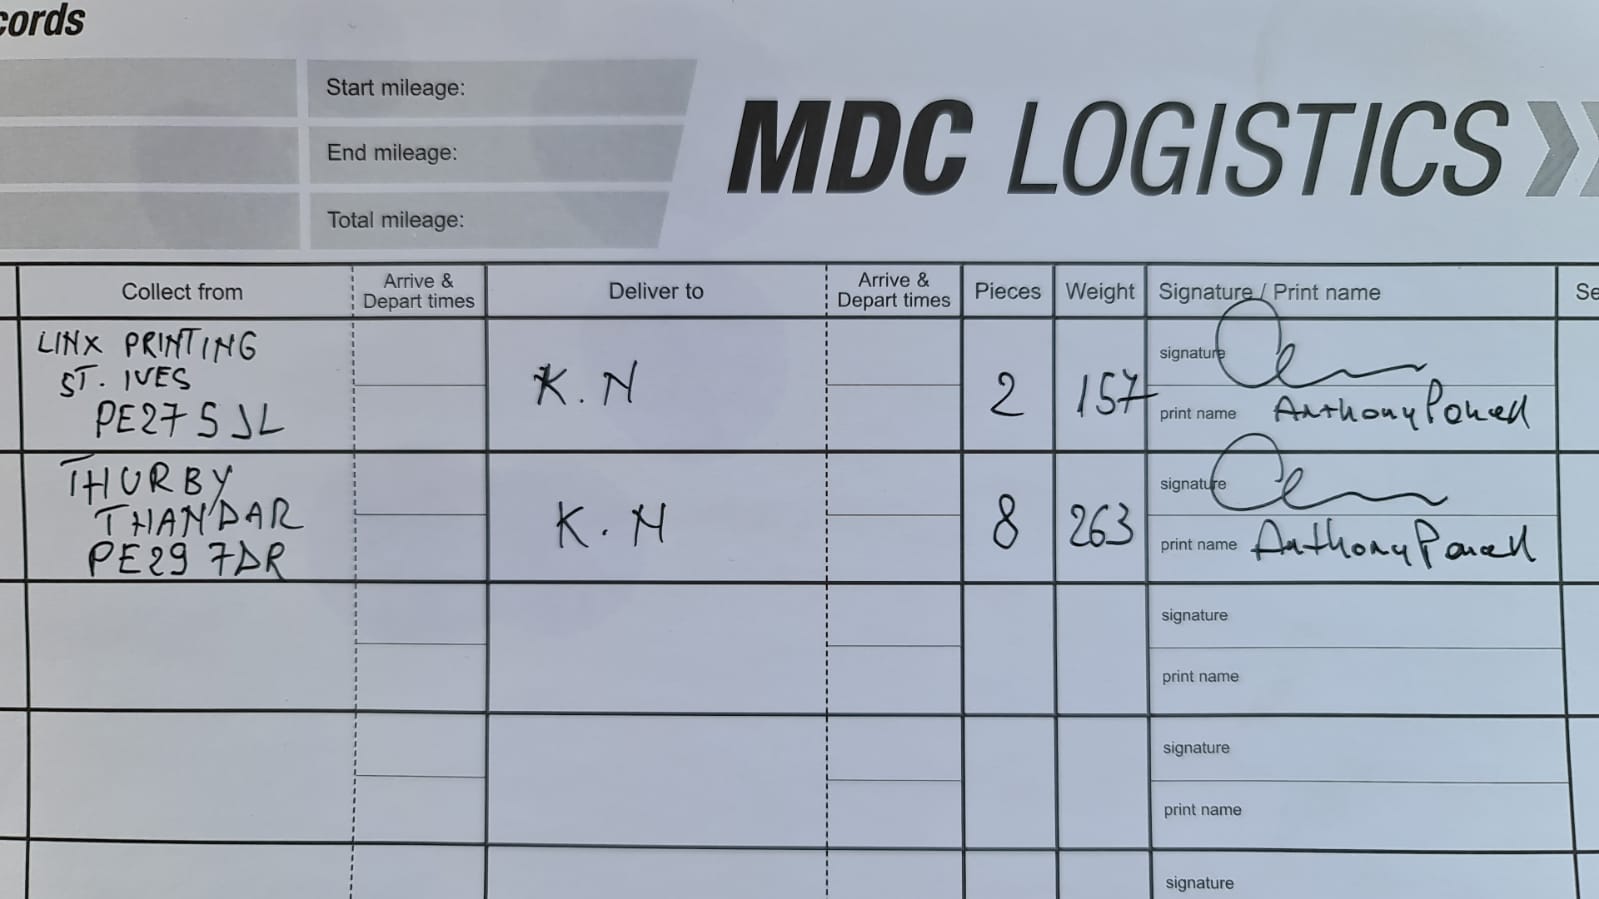 cords
Start mileage:
End mileage:
Total mileage:
MDC LOGISTICS
Collect from
Arrive &
Depart times
Deliver to
Arrive &
Depart times
Pieces
Weight
Signature / Print name
Se
LINX PRINTING
ST. IVES
PE27 5JL
K.N
2
157
signature
print name Anthony Powell
THURBY
THANDAR
PE29 7DR
K.N
8
263
signature
print name Anthony Powell
signature
print name
signature
print name
signature